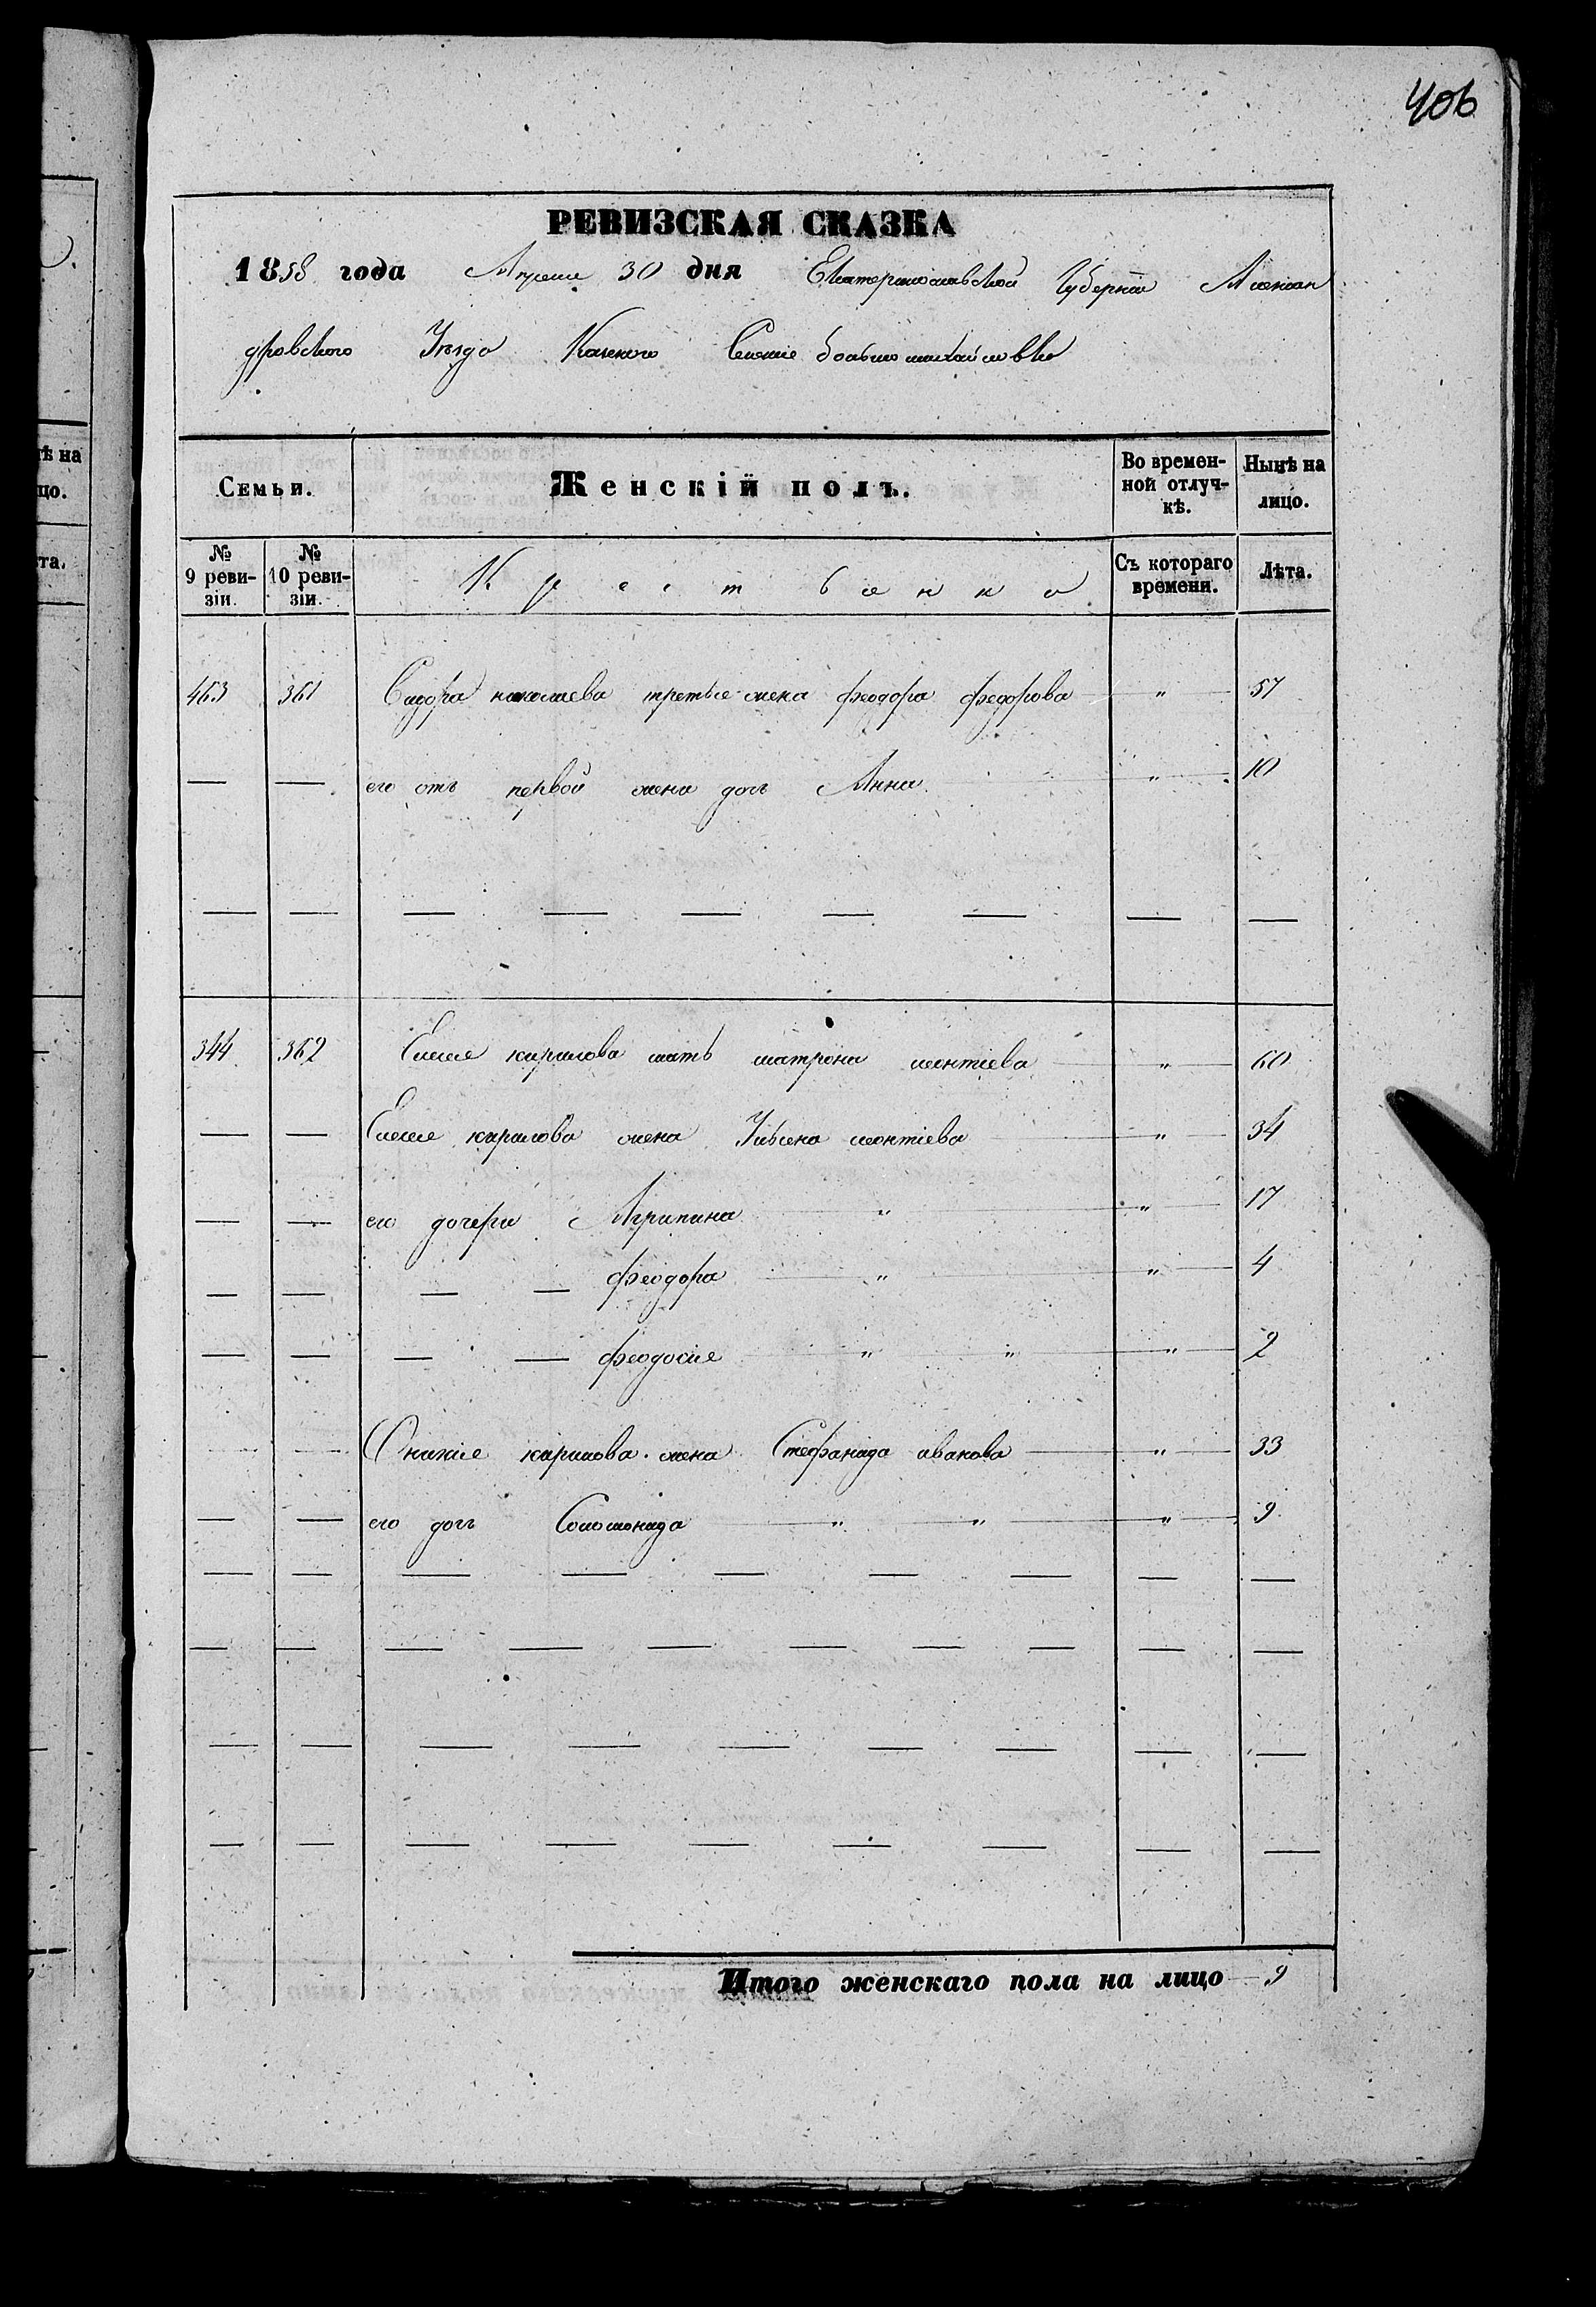 406
РЕВИЗСКАЯ СКАЗКА
1858 года Апреля 30 дня Екатеринославской Губернии Алексан
дровского Уезда Казеного Селение большомихайловки
Семьи.
Женскій полъ.
Во времен-
ной отлуч-
кѣ.
Нынѣ на
лицо.
№
9 реви-
зіи.
№
10 реви-
зіи.
Съ котораго
времени.
Лѣта.
463 361 Сидора николаева третье жена феодора федорова " 57
— — его отъ первой жени дочь Анна " 10
344 362 кирилова мать матрона леонтіева " 60
— — кирилова жена Ульяна леонтіева " 34
— — его дочери Агрипина " " 17
— — — — феодора " " 4
— — — — феодосие " " " 2
— — кирилова жена Стефанида иванова " 33
— — его дочь Соломонида " " " 9
Итого женскаго пола на лицо — 9
тѣ на
цо.
та.